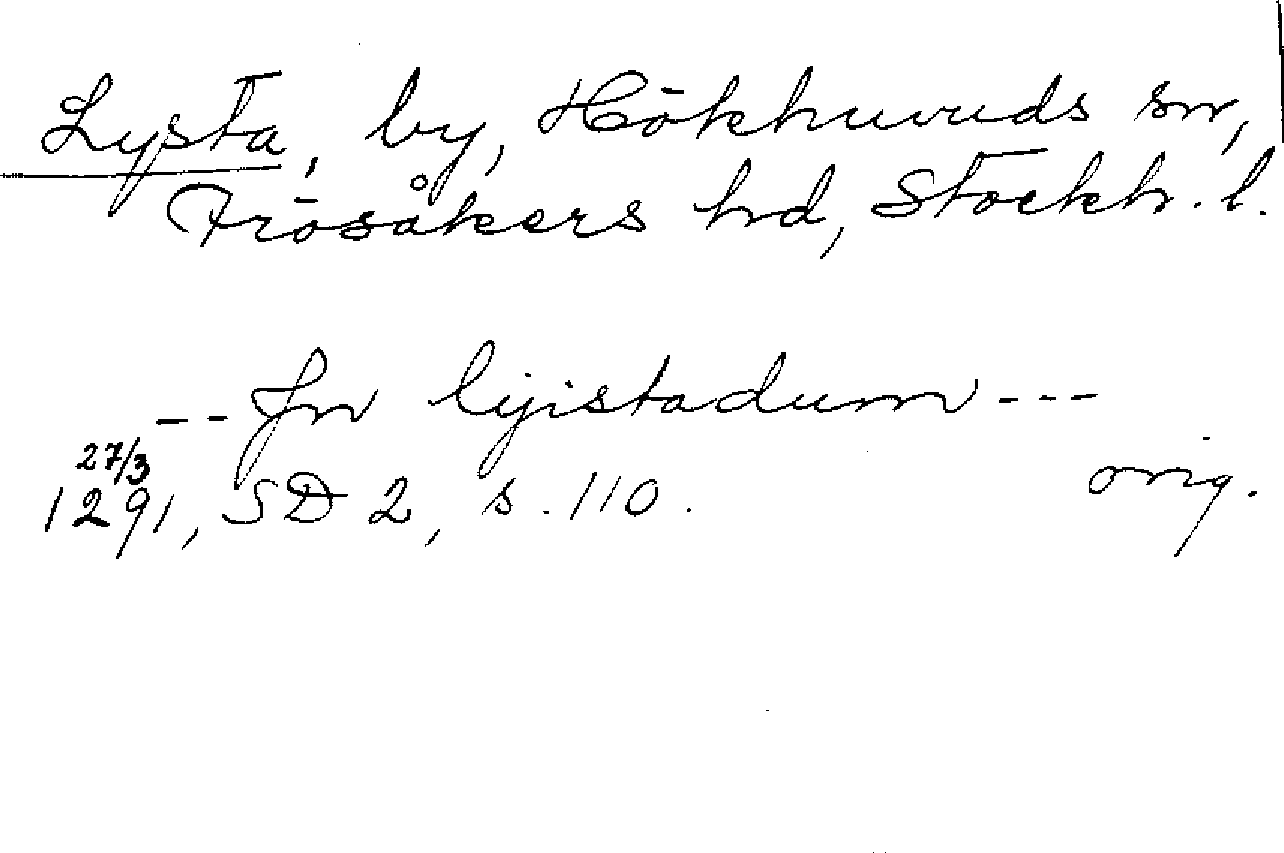 Lysta, by, Hökhuvuds sn,
Frösåkers hd, Stockh. l.
-- Jn lijistadum ---
27/3
1291, SD 2, s. 110. orig.